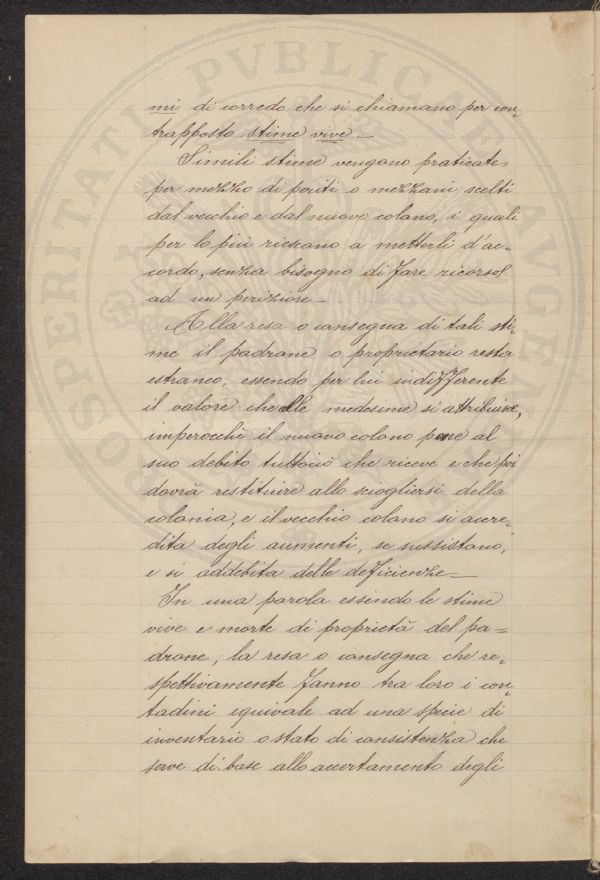 mi di corredo che si chiamano per con,
trapposto stime vive —
Simili stime vengono praticate
per mezzo di periti o mezzani scelti
dal vecchio e dal nuovo colono, i quali
per lo più riescono a metterli d'ac,
cordo, senza bisogno di fare ricorso
ad un periziore —
Alla resa o consegna di tali sti,
me il padrone o proprietario resta
estraneo, essendo per lui indifferente
il valore che alle medesime si attribuisce,
imperocchè il nuovo colono pone al
suo debito tuttociò che riceve e che poi
dovrà restituire allo sciogliersi della
colonia, e il vecchio colono si accre,
dita degli aumenti, se sussistano,
e si addebita delle deficienze —
In una parola essendo le stime
vive e morte di proprietà del pa=
drone, la resa o consegna che re,
spettivamente fanno tra loro i con,
tadini equivale ad una specie di
inventario o stato di consistenza che
serve di base allo accertamento degli
PROSPERITATI PVBLICAE AVGENDAE